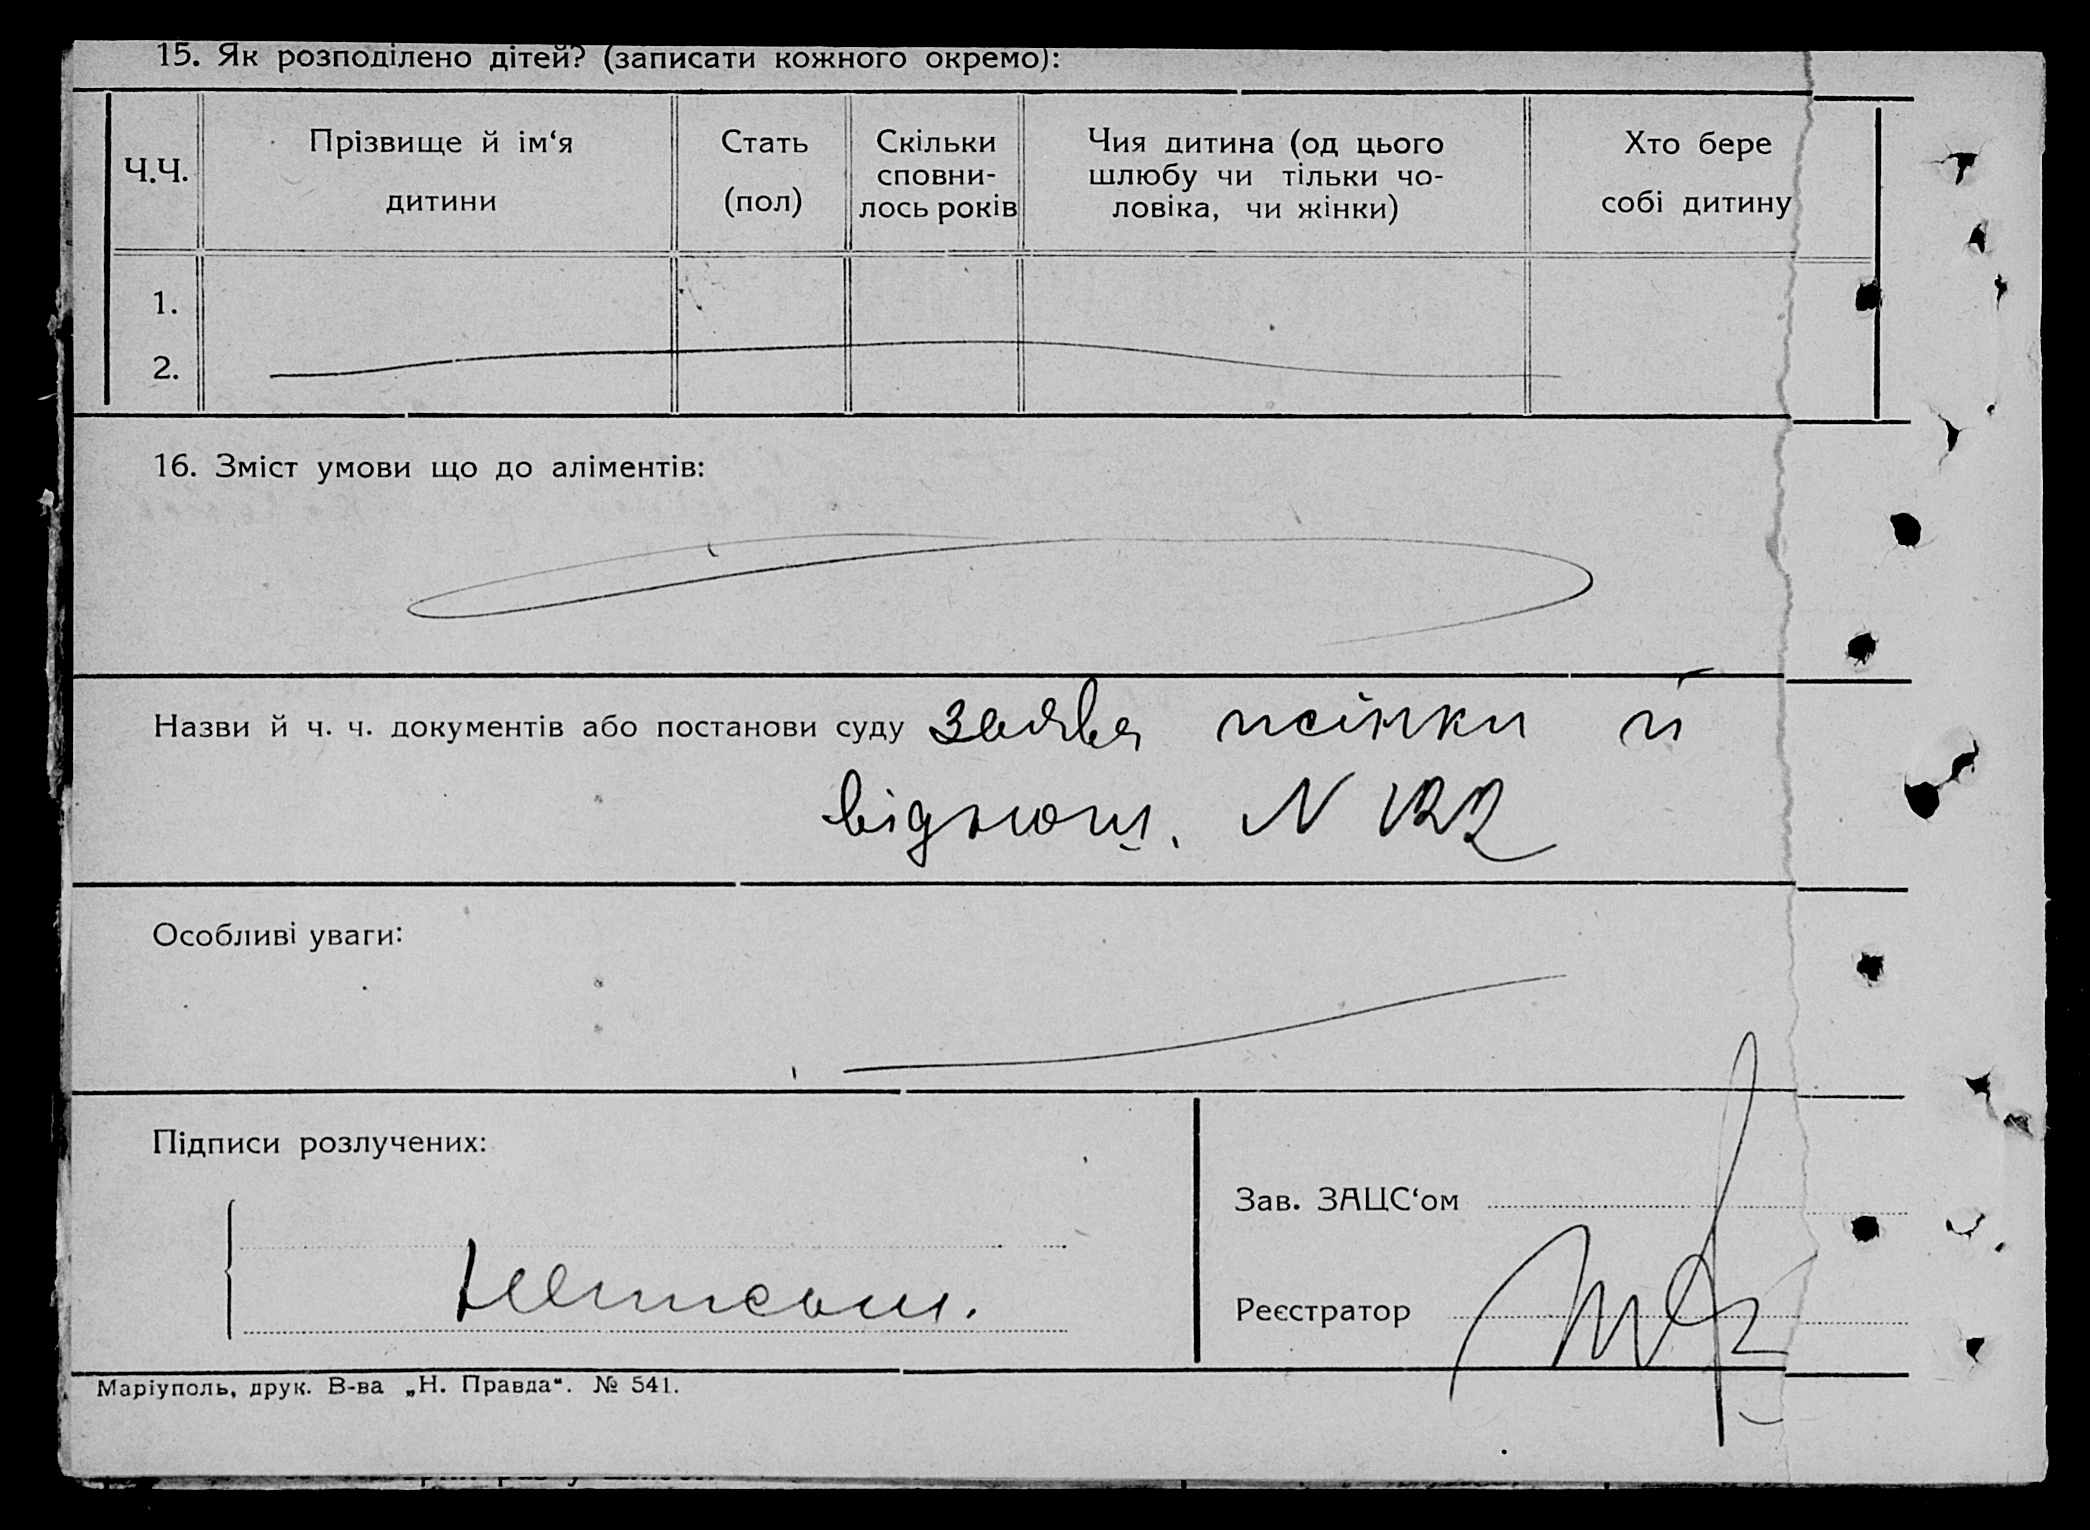 15. Як розподілено дітей? (записати кожного окремо):
Ч.Ч.
Прізвище й ім‘я
дитини
Стать
(пол)
Скільки
сповни-
лось років
Чия дитина (од цього
шлюбу чи тільки чо-
ловіка, чи жінки)
Хто бере
собі дитину
1.
2.
16. Зміст умови що до аліментів:
Назви й ч. ч. документів або постанови суду заява жінки й
віднош. N 122
Особливі уваги:
Підписи розлучених:
Зав. ЗАЦС‘ом
Реєстратор
Маріуполь, друк. В-ва „Н. Правда“. № 541.